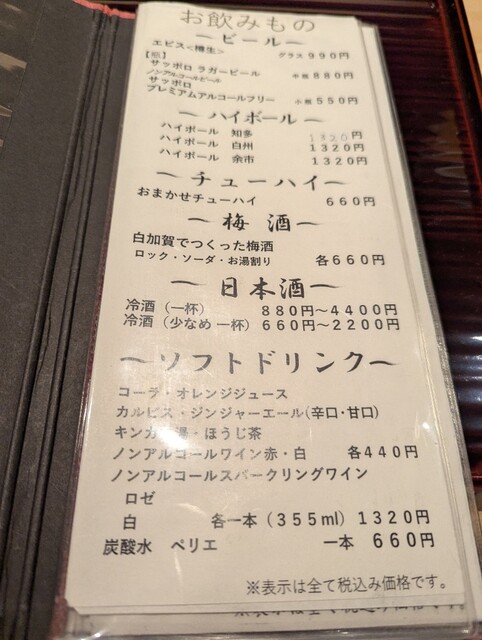 お飲みもの
～ビール～
エビス<樽生> グラス 990円
【瓶】
サッポロ ラガービール 中瓶 880円
ノンアルコールビール
サッポロ
プレミアムアルコールフリー 小瓶 550円
～ハイボール～
ハイボール 知多 1320円
ハイボール 白州 1320円
ハイボール 余市 1320円
～チューハイ～
おまかせチューハイ 660円
～梅酒～
白加賀でつくった梅酒
ロック・ソーダ・お湯割り 各660円
～日本酒～
冷酒（一杯） 880円～4400円
冷酒（少なめ 一杯） 660円～2200円
～ソフトドリンク～
コーラ・オレンジジュース
カルピス・ジンジャーエール(辛口・甘口)
キンカン湯・ほうじ茶
ノンアルコールワイン赤・白 各440円
ノンアルコールスパークリングワイン
ロゼ
白 各一本（355ml）1320円
炭酸水 ペリエ 一本 660円
※表示は全て税込み価格です。